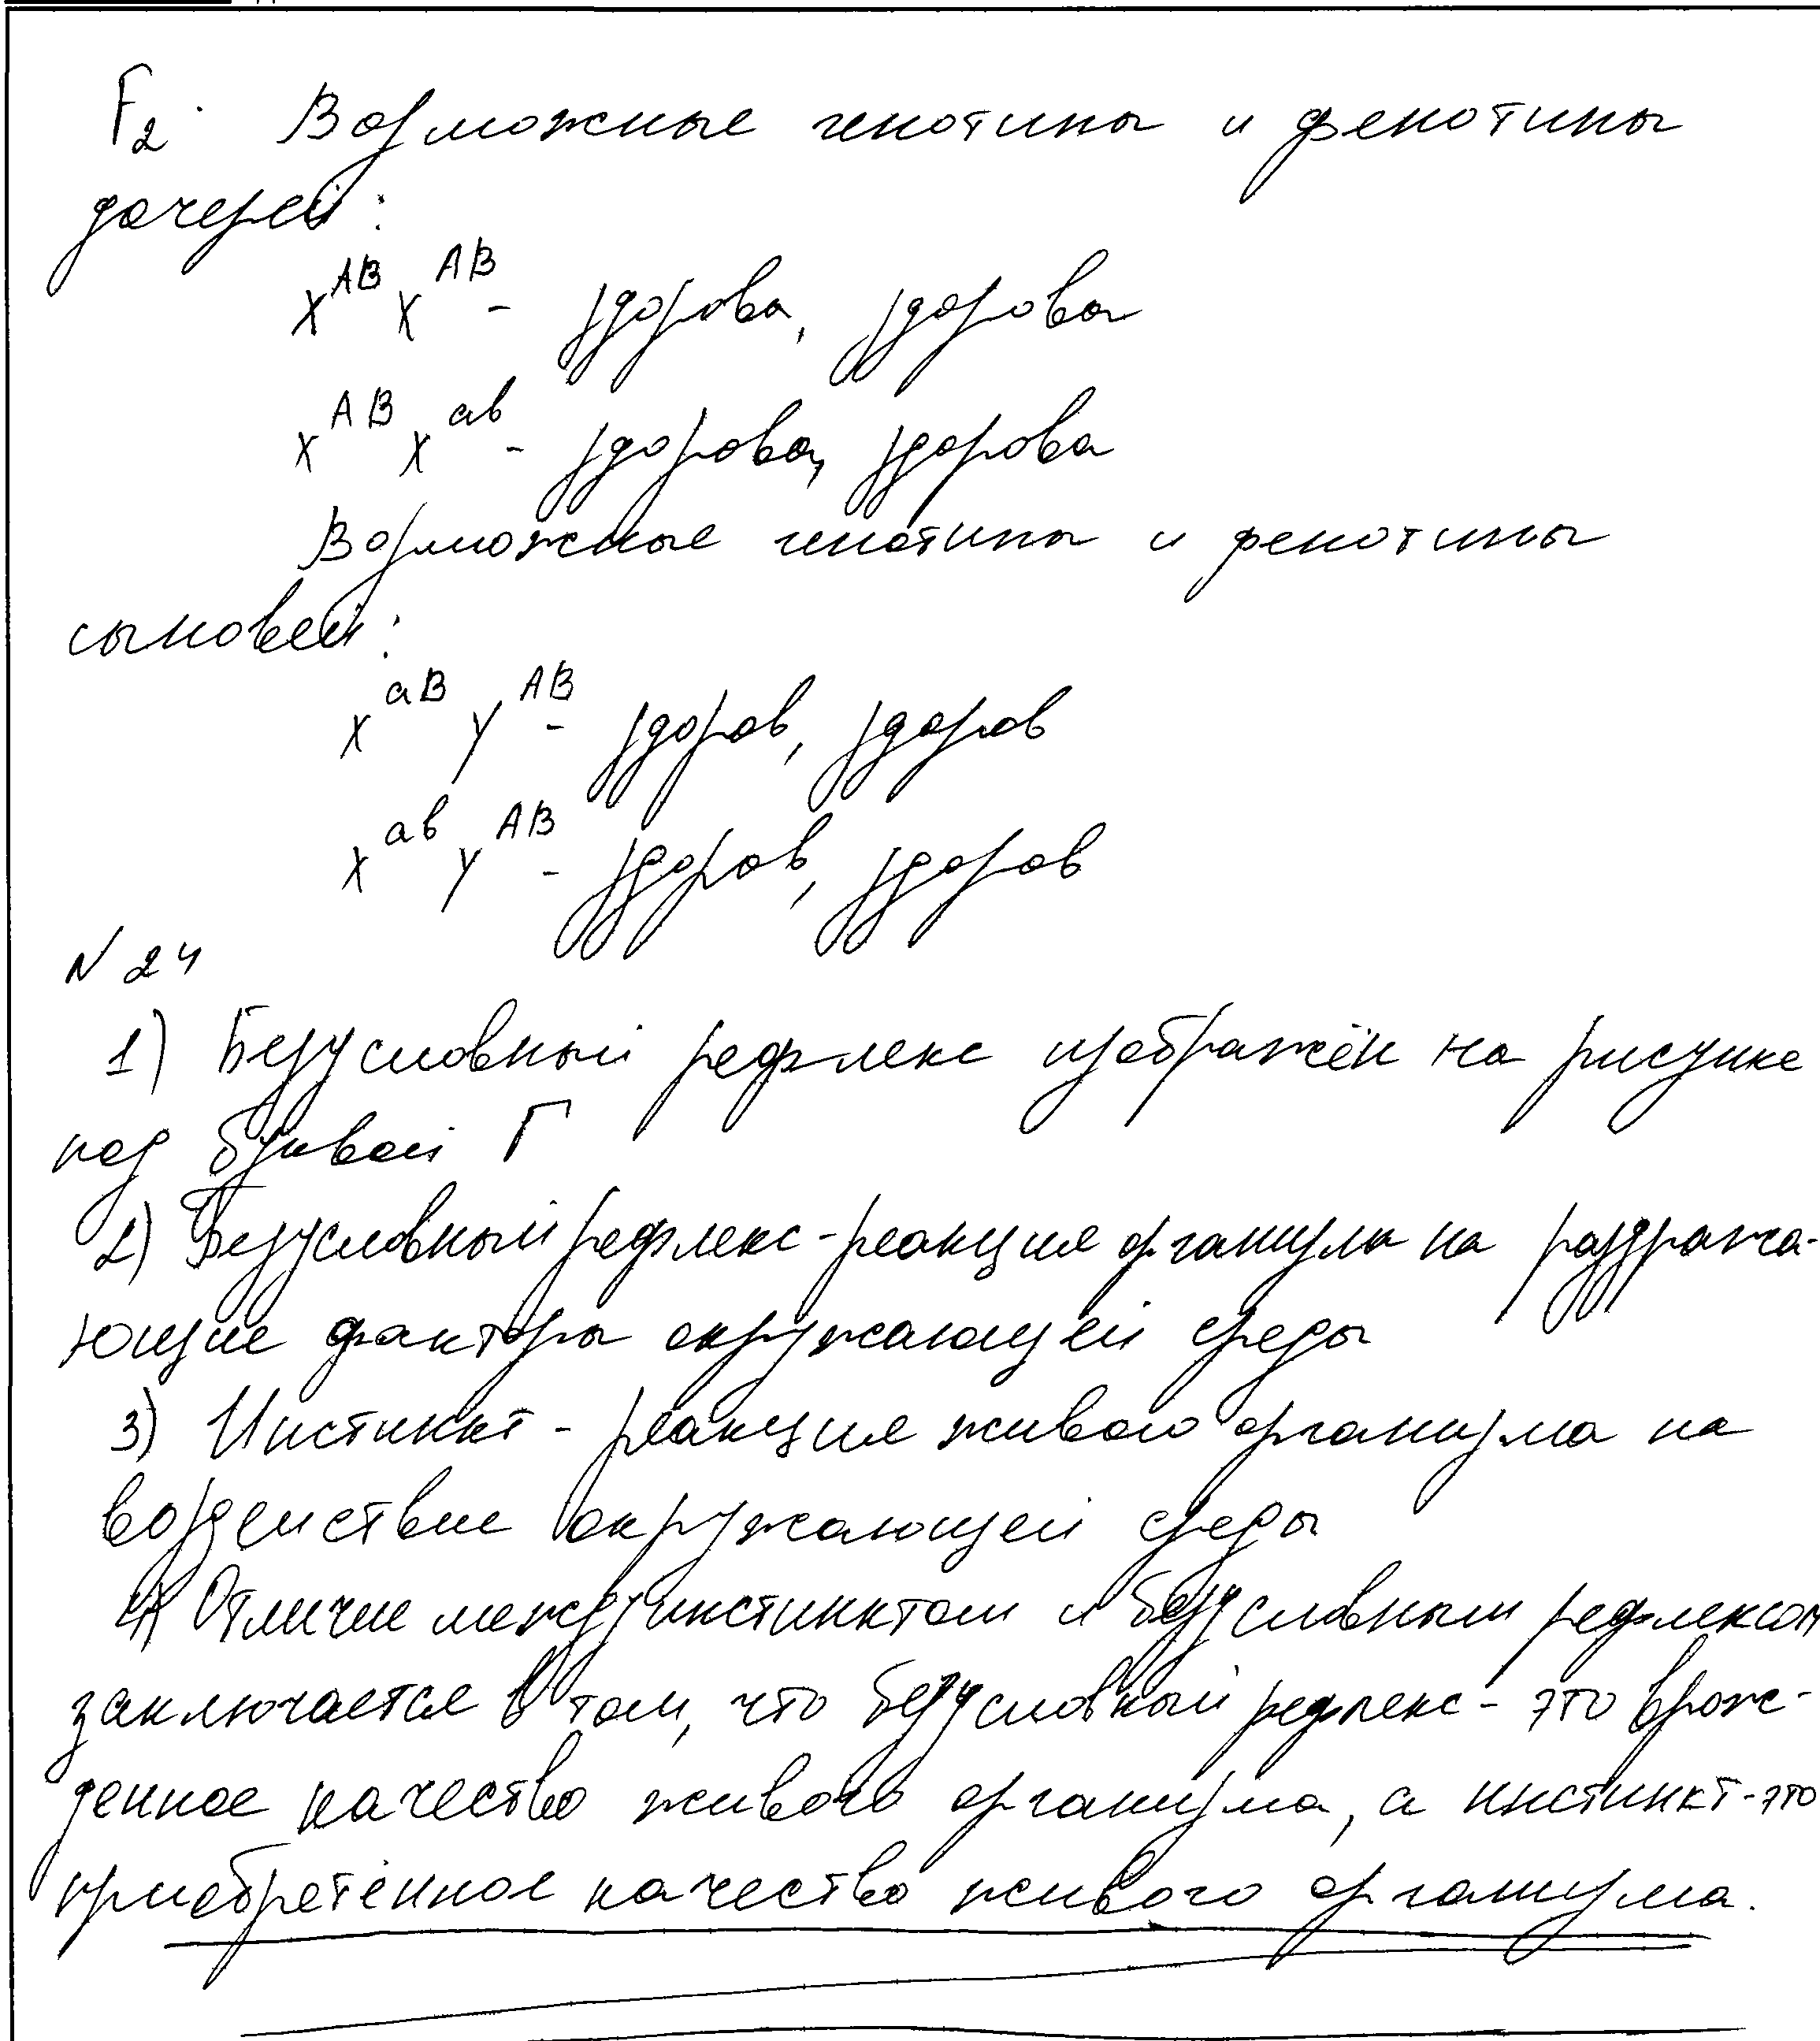 F₂. Возможные генотипы и фенотипы
дочерей:
X^AB X^AB - здорова, здорова
X^AB X^ав - здорова, здорова
Возможные генотипы и фенотипы
сыновей:
X^аВ Y^АВ - здоров, здоров
X^ав Y^АВ - здоров, здоров
N 24
1) Безусловный рефлекс изображён на рисунке
под буквой Г
2) Безусловный рефлекс - реакция организма на раздража-
ющие факторы окружающей среды
3) Инстинкт - реакция живого организма на
воздействие окружающей среды
4) Отличие между инстинктом и безусловным рефлексом
заключается в том, что безусловный рефлекс - это врож-
денное качество живого организма, а инстинкт - это
приобретённое качество живого организма.